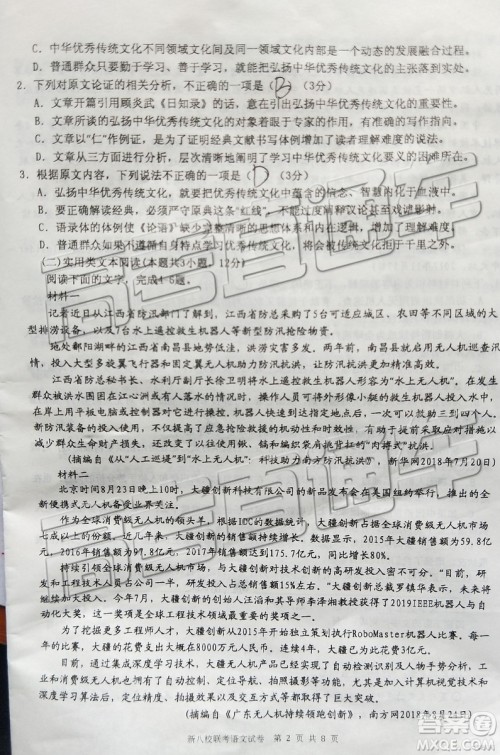 C. 中华优秀传统文化不同领域文化间及同一领域文化内部是一个动态的发展融合过程。
D. 普通群众只要勤于学习、善于学习，就能把弘扬中华优秀传统文化的主张落到实处。
2. 下列对原文论证的相关分析，不正确的一项是（ B ）（3分）
A. 文章开篇引用顾炎武《日知录》的话，意在引出弘扬中华优秀传统文化的重要性。
B. 文章所谈的弘扬中华优秀传统文化的对象着眼于专家的作用，有尤为典型的意义。
C. 文章以“仁”作例证，是为了证明经典文献书写体例增加了读者理解难度的说法。
D. 文章从三方面进行分析，层次清晰地阐明了应如何弘扬中华优秀传统文化的问题。
3. 根据原文内容，下列说法不正确的一项是（ D ）（3分）
A. 弘扬中华优秀传统文化，就是要将其蕴含的信念、智慧沉淀于血液中。
B. 要正确解读经典，必须严守原典这条“红线”，不可妄加评论甚至戏谑影射。
C. 语录体的体例使《论语》缺少动要清晰的思想体系和内在逻辑，增加了理解难度。
D. 普通群众如果不遵循自身特点学习优秀传统文化，将会被传统文化拒于千里之外。
(二)实用类文本阅读(本题共3小题，12分)
阅读下面的文字，完成4-6题。
材料一
记者近日从江西省防汛部门了解到，江西省防汛部门采购了5台可适应城区、农田等不同区域的大
型排涝设备，以及7台水上遥控救生机器人等新型防汛抢险物资。
地处鄱阳湖畔的江西省南昌县地势低洼，洪涝灾害多发。为此，两年前，南昌县就启用无人机巡查汛
情，投入大型多旋翼飞行器和固定翼无人机助力抗洪，让防汛抗洪更加精准高效。
江西省防总秘书长、水利厅副厅长徐卫明将水上遥控救生机器人形容为“水上无人机”。在发生
群众被洪水围困在江心洲或有人落水的情况时，操作人员可将外形像小艇的机器人投入水中，并在岸
上用平板电脑或控制器对它进行操控。机器人会以最快的速度接近目标群众，将其带离危险水域。全
新防汛装备的投入使用，不仅提高了应急抢险能力和安全系数，更有效减少了抗洪抢险对人力的过度
依赖，改变了过去依靠铁锹、镐和编织袋肩挑背扛的“肉搏式”抗洪。
(摘编自《从“人工巡堤”到“水上无人机”：科技助力南方防汛抗洪》，新华网2018年7月20日)
材料二
北京时间8月23日晚上10时，大疆创新科技有限公司的新品发布会在美国纽约举行，推出的全
新便携式无人机备受业界关注。
作为全球消费级无人机的领头羊，根据IDC的数据统计，大疆创新目前占据全球消费级无人机市场
七成以上的份额。近几年来，大疆创新无人机销售额持续增长，2015年，大疆创新销售额为59.8亿
元，2016年销售额为97.8亿元，2017年销售额达到175.7亿元，同比增长79.6%。
持续引领全球消费级无人机的发展，大疆创新对技术创新的高研发投入密不可分。“目前，研
发和工程技术人员占员工总数的三分之一，研发投入占总销售额15%左右。”大疆创新总裁罗镇华表示，未来将
不断加大投入。今年7月，大疆创新的创始人汪滔和其导师李泽湘教授获得了2019IEEE机器人与自
动化大奖，这一奖项是全球工程技术领域最重要的奖项之一。
为了挖掘更多工程师人才，大疆创新从2015年开始独立策划执行RoboMaster机器人比赛。每一
年的比赛，大疆的花费支出大概在8000万元人民币。连续4年，大疆总共为此花费3亿元。
目前，通过集成深度学习技术，大疆创新无人机产品已经实现了自动检测识别及人物手势分析，工
业领域也具有了自动控制、定位导航、拍照摄影等功能，尤其是加入计算机视觉技术和
深度学习算法后，定位控制、目标识别等功能都取得了巨大突破。
(摘编自《广东无人机持续领跑创新》，南方网2018年8月24日)
新八校联考语文试卷 第 2 页 共 8 页